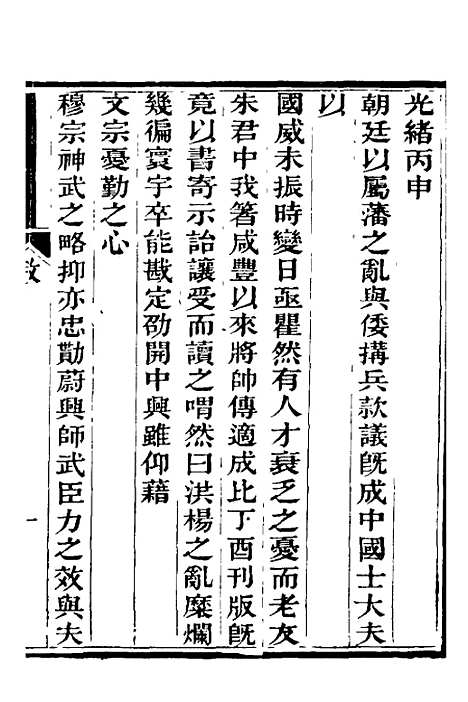 光緒丙申
朝廷以屬藩之亂與倭搆兵款議旣成中國士大夫
以
國威未振時變日亟瞿然有人才衰乏之憂而老友
朱君中我箸咸豐以來將帥傳適成比丁酉刊版旣
竟以書寄示詒讓受而讀之喟然曰洪楊之亂糜爛
幾徧寰宇卒能戡定劭開中興雖仰藉
文宗憂勤之心
穆宗神武之略抑亦忠勩蔚興師武臣力之效與夫
敘
一